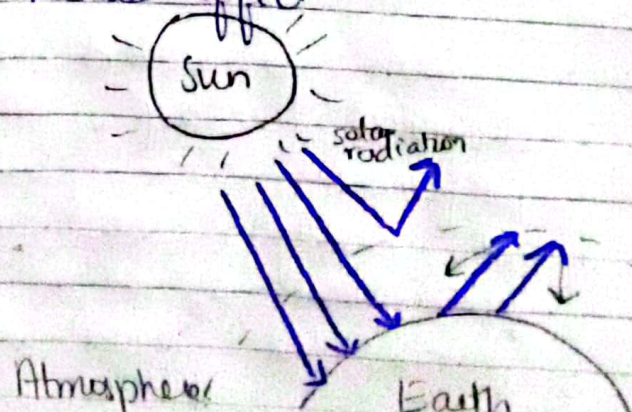 Sun
solar
radiation
Atmosphere
Earth